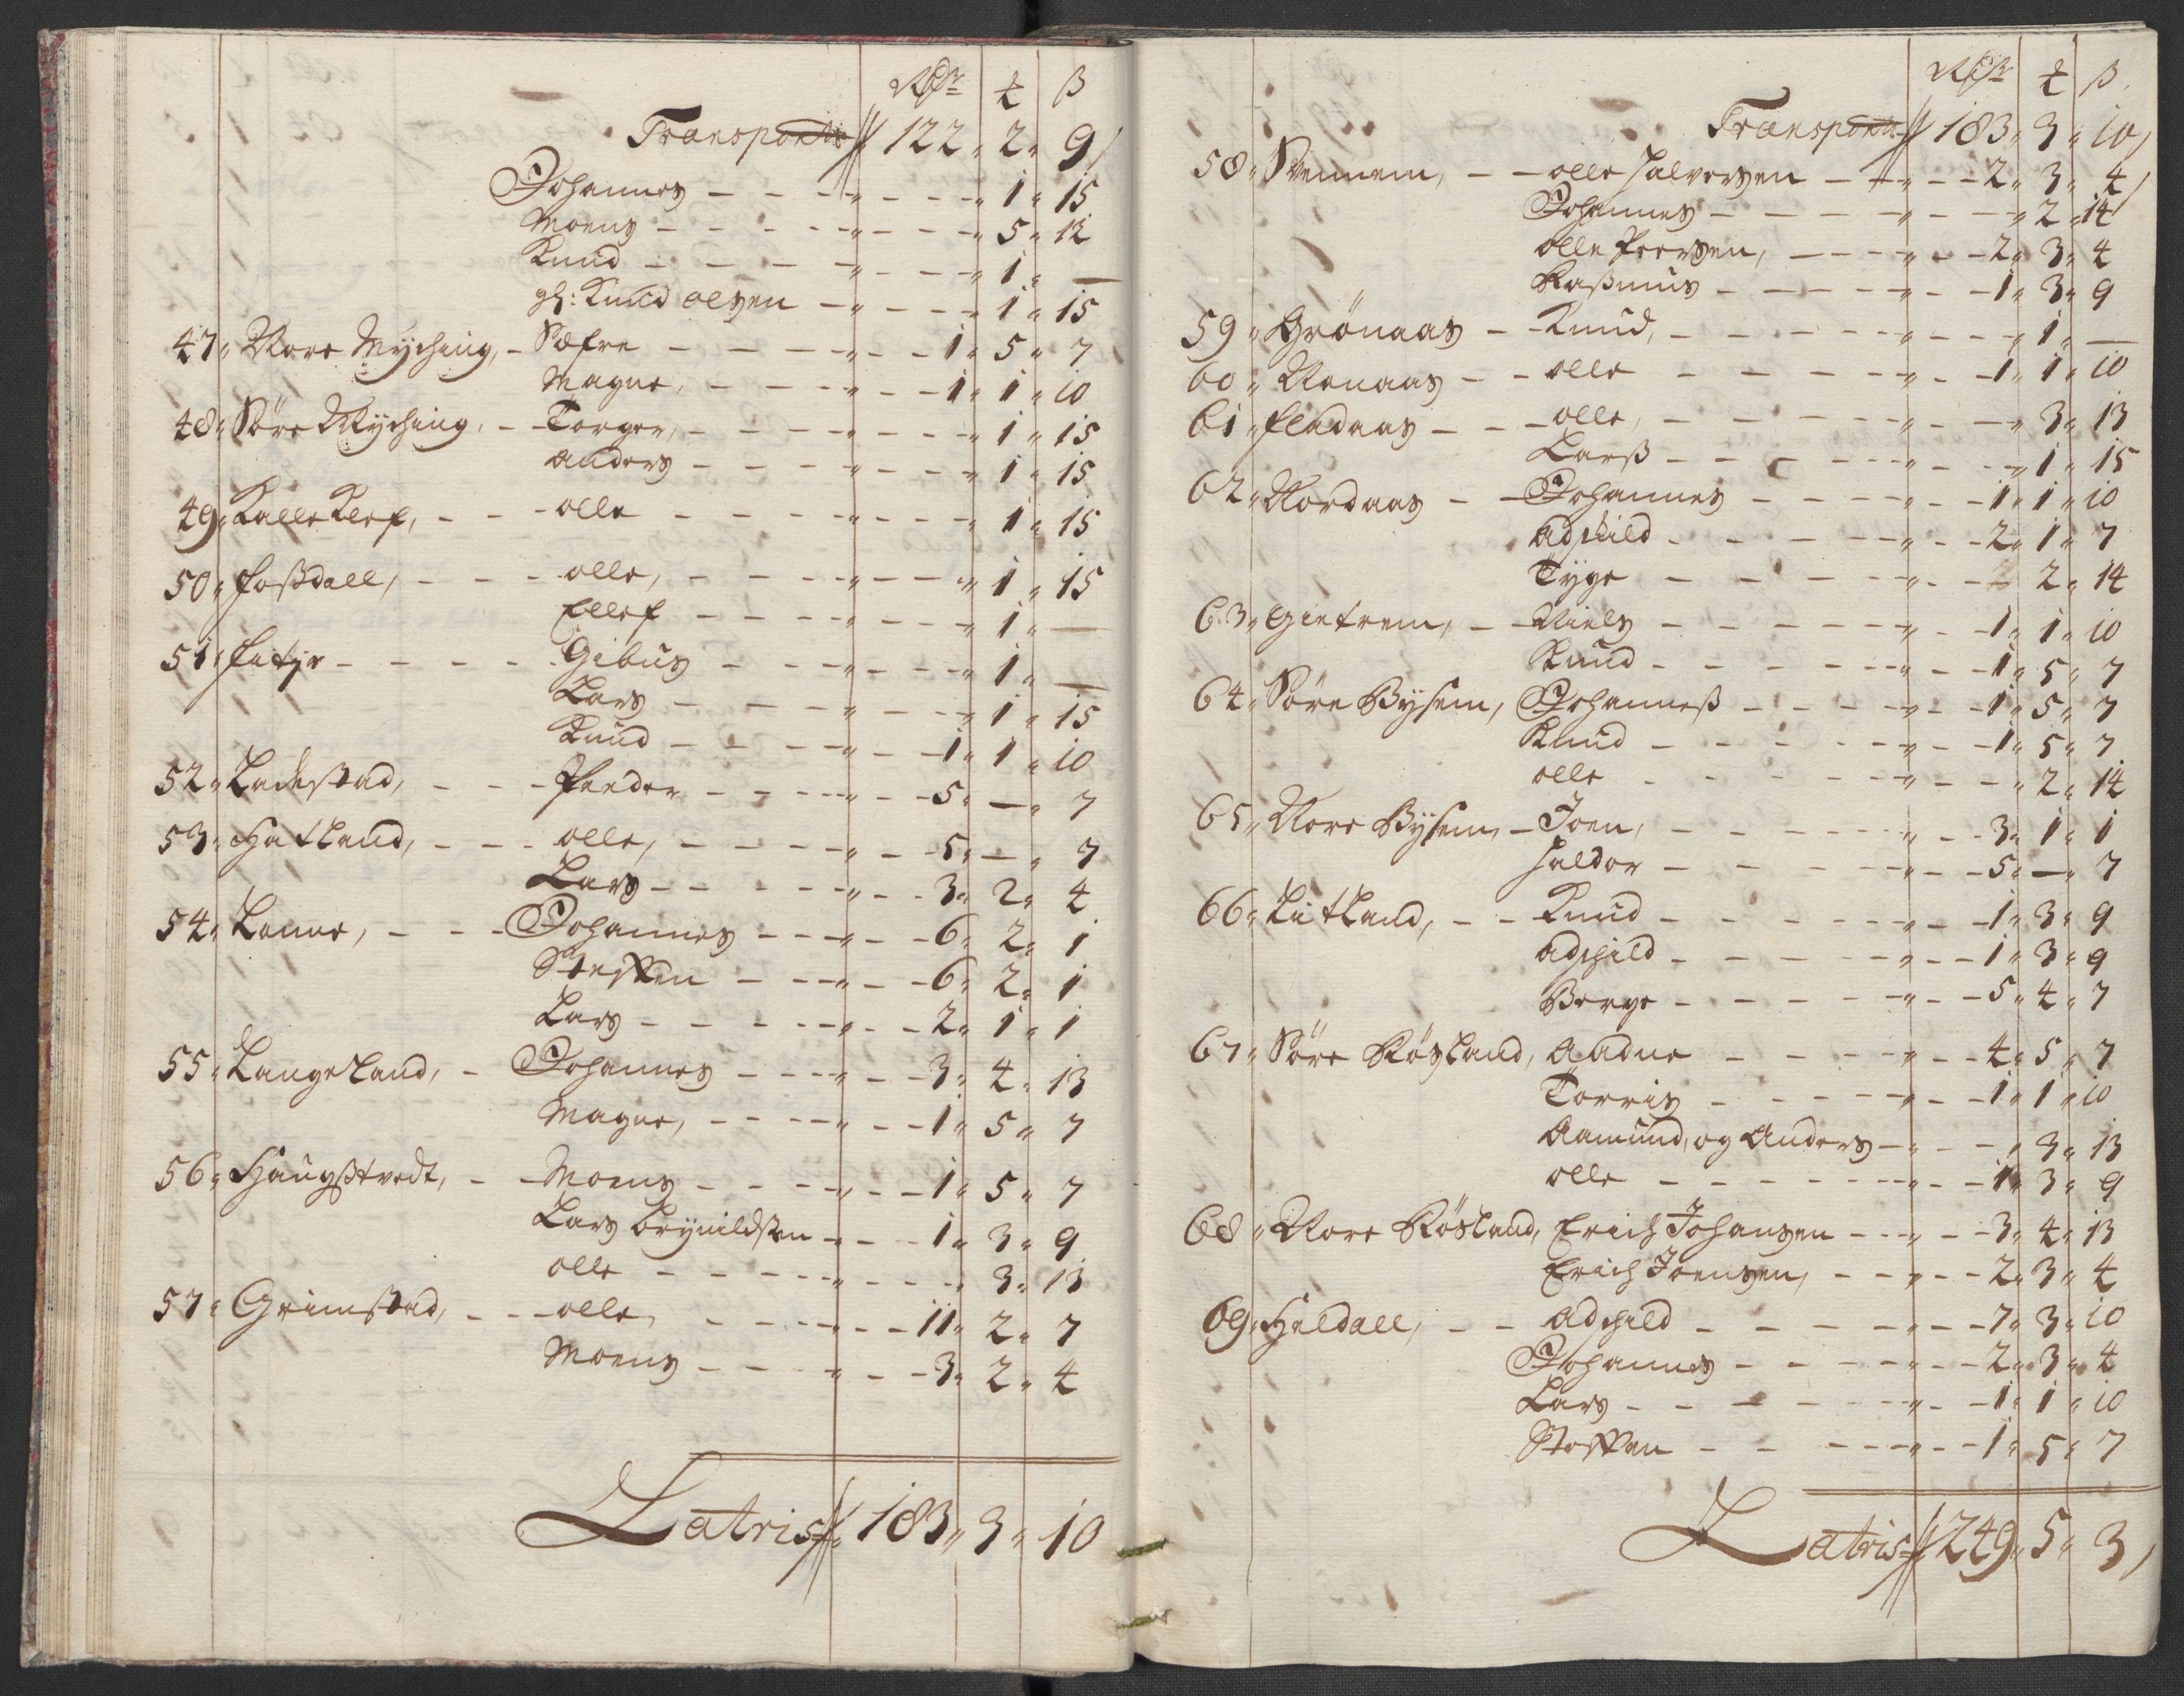 Rdr ₤ ß
Transporte 122 " 2 " 9
Johannes - - - " - - - " 1 " 15
Moens - - - " - - - " 5 " 12
Knud - - - " - - - " 1 " —
gl: Knud olsen - " - - - " 1 " 15
47 " Nore Myching, - Sæfre - - - " - - 1 " 5 " 7
Magne, - - - " - - 1 " 1 " 10
48 " Söre Myching, - - Torger, - - - " - - - " 1 " 15
anders - - - " - - - " 1 " 15
49 " Kalle Klef, - - - olle - - - " - - - " 1 " 15
50 " foßdall, - - - olle, - - - " - - - " 1 " 15
Ellef - - - " - - - " 1 " —
51 " - - - Gibus - - - " - - - " 1 " —
Lars - - - " - - - " 1 " 15
Knud - - - " - - 1 " 1 " 10
52 " Ladestad, - - - Peeder - - - " - - 5 " — " 7
53 " Hatland, - - - olle, - - - " - - 5 " — " 7
Lars - - - " - - 3 " 2 " 4
54 " Lonne, - - - Johannes - - - " - - 6 " 2 " 1
Steffen - - - " - - 6 " 2 " 1
Lars - - - " - - 2 " 1 " 1
55 " Langeland, - Johannes - - - " - - 3 " 4 " 13
Magne, - - - " - - 1 " 5 " 7
56 " Haugstvedt, - - Moens - - - " - - 1 " 5 " 7
Lars brynildsen - - - 1 " 3 " 9
olle - - - " - - - " 3 " 13
57 " Grimstad, - - - olle, - - - " - - 11 " 2 " 7
Moens - - - " - - 3 " 2 " 4
Latris 183 " 3 " 10
Rdr ₤ ß
Transporte 183 " 3 " 10
58 " Svennem, - - olle Halvorsen - " - - 2 " 3 " 4
Johannes - - - " - - - " 2 " 14
olle Peersen, - - - " - - 2 " 3 " 4
Raßmus - - - " - - 1 " 3 " 9
59 " Grönaas - - Knud, - - - " - - - " 1 " —
60 " Nonaas - - olle - - - " - - 1 " 1 " 10
61 " fladaas - - - olle, - - - " - - - " 3 " 13
Larß - - - " - - - " 1 " 15
62 " Nordaas - - Johannes - - - " - - 1 " 1 " 10
adschild - - - " - - 2 " 1 " 7
Tyge - - - " - - 2 " 14
63 " Gietrem, - - Niels - - - " - - 1 " 1 " 10
Knud - - - " - - 1 " 5 " 7
64 " Söre Bysem, Johanneß - - - " - - 1 " 5 " 7
Knud - - - " - - 1 " 5 " 7
olle - - - " - - - " 2 " 14
65 " Nore Bysem, - Joen, - - - " - - 3 " 1 " 1
Haldor - - - " - - 5 " — " 7
66 " Litland, - - Knud - - - " - - 1 " 3 " 9
adschild - - - " - - 1 " 3 " 9
Berge - - - " - - 5 " 4 " 7
67 " Söre Rösland, Aadne - - - " - - 4 " 5 " 7
Torris - - - " - - 1 " 1 " 10
Aamund, og Anders - " - - " 3 " 13
olle - - - " - - 1 " 3 " 9
68 " Nore Rösland, Erich Johansen - - " - - 3 " 4 " 13
Erich Joensen, - - " - - 2 " 3 " 4
69 " Heldall, - - adschild - - - " - - 7 " 3 " 10
Johannes - - - " - - 2 " 3 " 4
Lars - - - " - - 1 " 1 " 10
Steffen - - - " - - 1 " 5 " 7
Latris 249 " 5 " 3